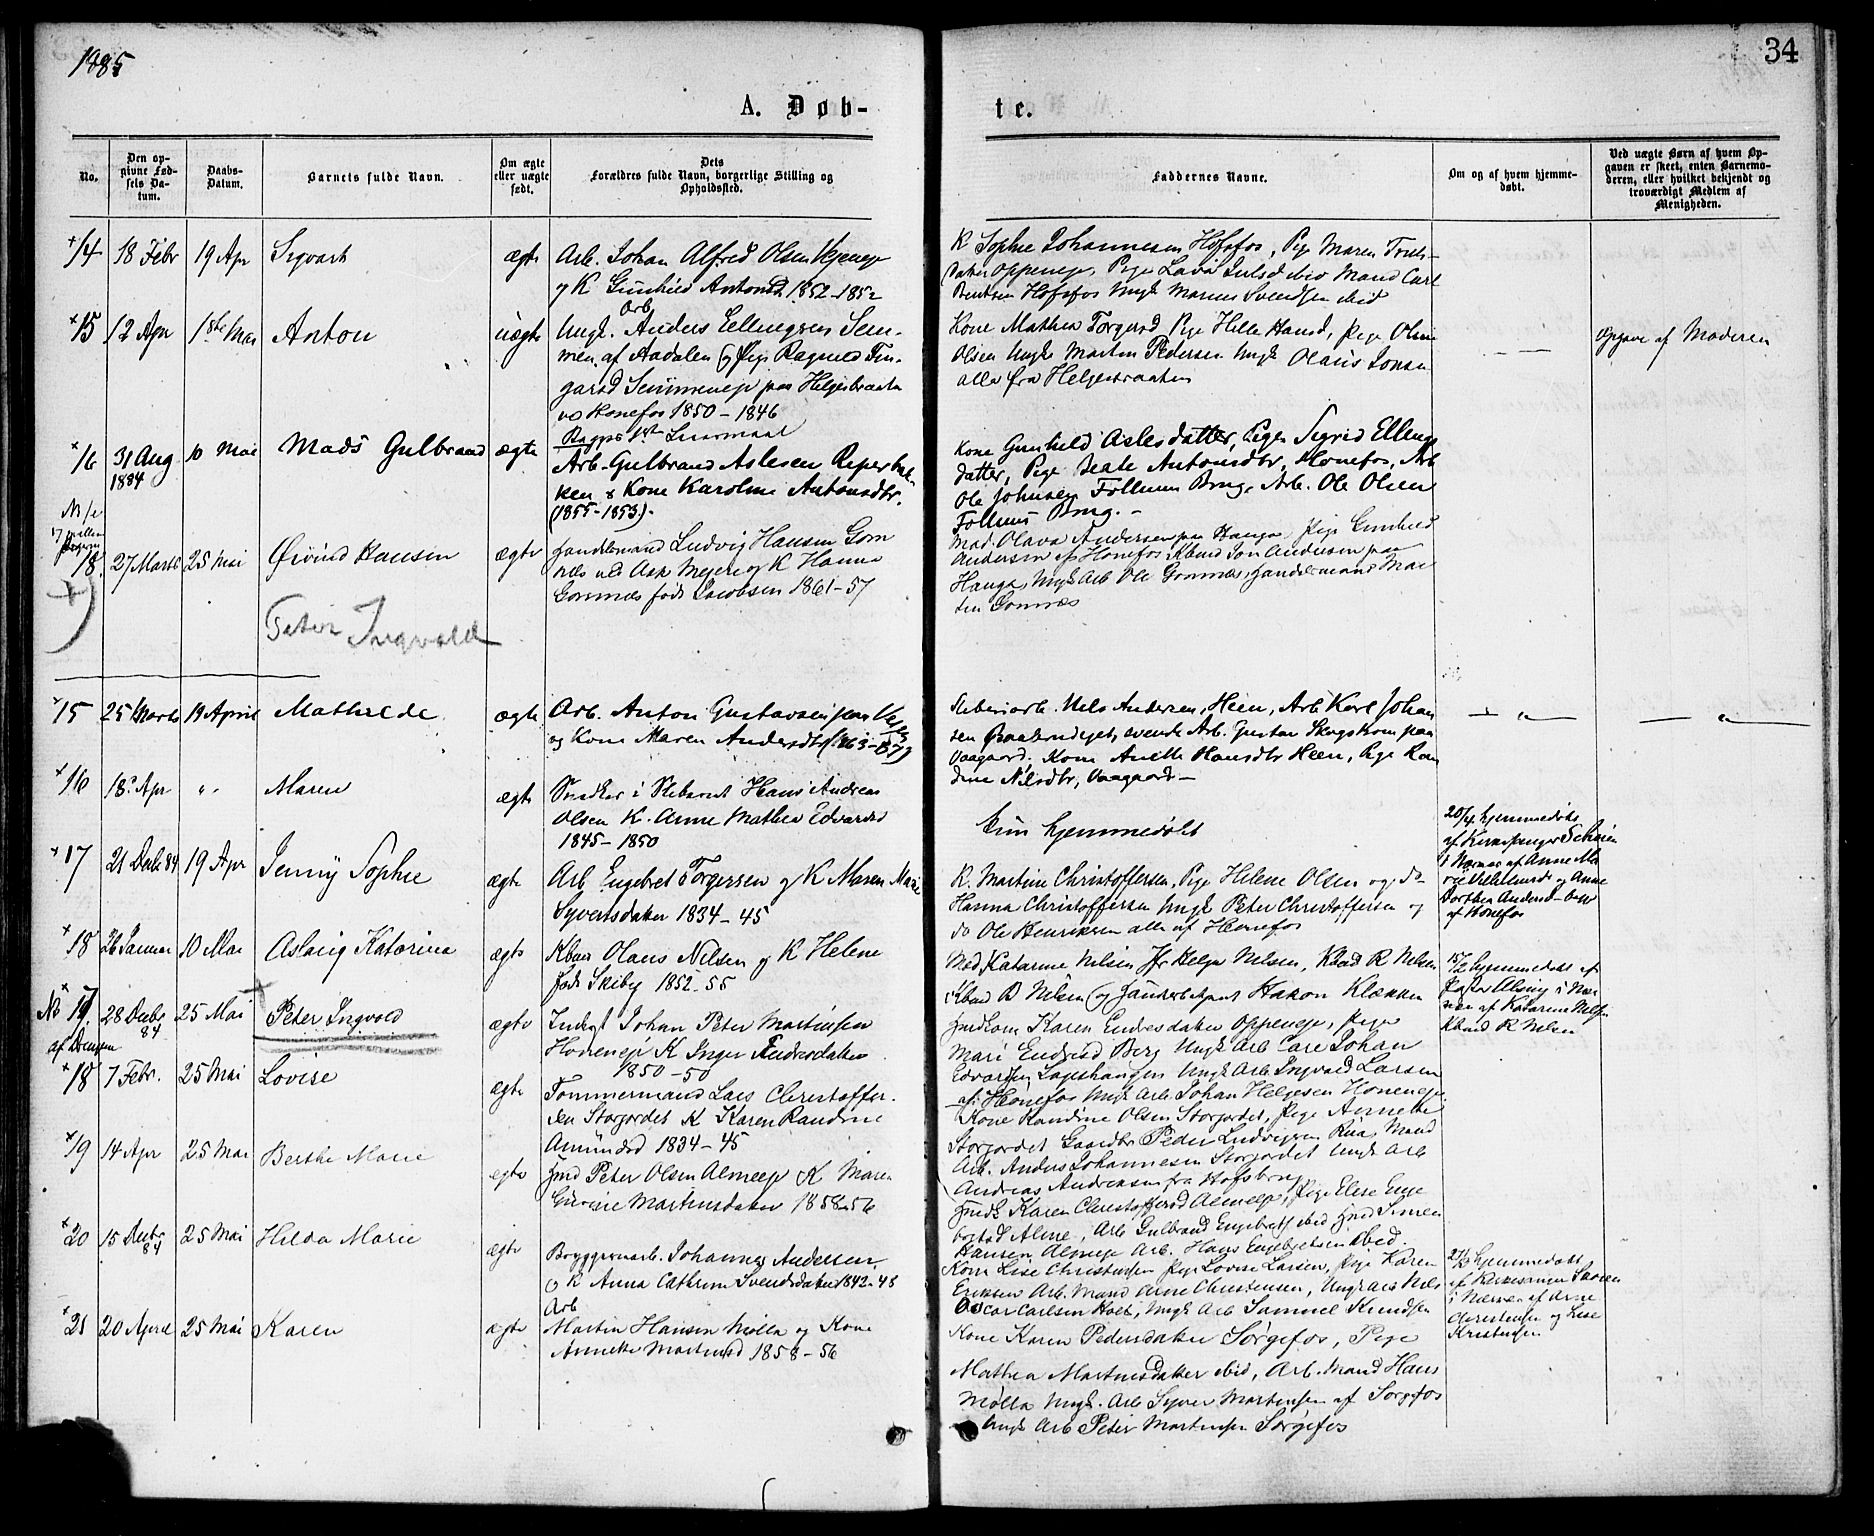 1885
34
A. Døb-
te.
No.
Den op-
givne Fød-
sels Da-
tum.
Daabs-
Datum.
Barnets fulde Navn.
Om ægte
eller uægte
født.
Dets
Forældres fulde Navn, borgerlige Stilling og
Opholdssted.
Faddernes Navne.
Om og af hvem hjemme-
døbt.
Ved uægte Børn af hvem Op-
gaven er skeet, enten Barnemo-
deren, eller hvilket bekjendt og
troværdigt Medlem af
Menigheden.
14 18 Febr 19 Apr Sigvart ægte Arb. Johan Alfred Olsen
og K Gunhild 1852-1852
K Sophie Johannesen Hofsfos, Pige Maren
Oppeneje, Pige Lava ibid Mand Carl
Bentsen Hofsfos Ungk Marius Svendsen ibid
15 12 Apr 1ste Mai Anton uægte Ungk. Arb Anders Ellingsen Sem-
men af Aadalen og Pige Ragnild Tin-
garsd Semmeneje paa Helgesbraaten
ved Hønefos 1850 - 1846
Kone Mathea Torgersd Pige Helle Hansd, Pige Oline
Olsen Ungk Martin Pedersen Ungk Olaus Jonsen
alle fra Helgesbraaten
Opgave af Moderen
16 31 Aug 1884 10 Mai Mads Gulbrand ægte
Arb. Gulbrand Aslesen Reperbak-
ken & Kone Karoline Antonsdtr.
(1855-1853).
Kone Gunhild Aslesdatter, Pige Sigrid Ellings-
datter, Pige Beate Antonsdtr, Hønefos, Arb
Ole Johnsen Follum Brug, Arb. Ole Olsen
Follums Brug. -
18 27 Marts 25 Mai Øivind Hansen ægte Handelsmand Ludvig Hansen Gom
næs ved Ask Meieri og K Hanna
Gomnæs født Jacobsen 1861-57
Mad. Olava Andersen paa Hauga Pige Gunhild
Andersen af Hønefos Kbmd Jon Andersen paa
Hauga, Ungk Arb Ole Gomnæs, Handelsmand Mar
tin Gomnæs
Peter Ingvald
15 25 Marts 19 April Mathilde ægte Arb. Anton Gustavsen paa
og Kone Maren Andersdtr (1863-
Sliberiarb. Nils Andersen, Heen, Arb Karl Johan
sen svensk Arb. Gustav Skogstrøm paa
Vaagaard, Kone Anette Hansdtr Heen, Pige Ran
dine Nilsdtr, Vaagaard -
16 18 Apr " Maren ægte Snedker i Hans Andreas
Olsen K. Anne Mathea Edvardsd
1845-1850
kun hjemmedøbt
20/4 hjemmedøbt
af Kirkesanger
i Nærvær af Anne Ma
rie og Anne
Dorthea Andersd
af Hønefos
17 21 Decbr 84 19 Apr Jenny Sophie ægte Arb Engebret Torgersen og K Maren Marie
Syvertsdatter 1834-45
K. Martine Christoffersen, Pige Helene Olsen og do
Hanna Christoffersen Ungk Peter Christoffersen og
do Ole Henriksen alle af Hønefos
18 26 Januar 10 Mai Aslaug Katarina ægte Kbmd Olaus Nilsen og K Helene
født Skiby 1852-55
Mad. Katarine Nilsen Jfr Helga Nilsen, Kbmd R Nilsen
Kbmd B Nilsen og Handelsbetjent Hakon Klækken
15/2 hjemmedøbt af
i Nær
vær af Katarine Nilsen
Kbmd R Nilsen
No 17 af Drengen 28 Decbr 84 25 Mai Peter Ingvald ægte Indst Johan Peter Martinsen
Honeneje K Inger Endresdatter
1850-50
Indkone Karen Endresdatter Oppeneje, Pige
Mari Endresd Berg Ungk Arb Carl Johan
Edvardsen Ungk Arb Ingvald Larsen
af Hønefos Ungk Arb Johan Helgesen Honeneje
18 7 Febr. 25 Mai Lovise ægte Tømmermand Lars Christoffer-
sen Storjordet K Karen Randine
Amundsd 1834-45
Kone Randine Olsen Storjordet, Pige Annette
Storjordet Gaardbr Peder Ludvigsen Rua, Mand
Arb. Anders Johannesen Storjordet Ungk Arb
Andreas Andreasen fra Hofsbrug
19 14 Apr 25 Mai Berthe Marie ægte Ind Peter Olsen Almeje K Maren
Martinsdatter 1858-56
Indk Karen Christoffersd Almeje, Pige Elise Enge
bretsd Alme, Arb Gulbrand Engebretsen ibid Ind Simen
Hansen Almeje Arb. Hans Engebretsen ibid.
20 15 Decbr 84 25 Mai Hilda Marie ægte Bryggeriarb. Johannes Andersen
og K Anna Cathrine Svendsdatter 1842-48
Kone Lise Christensen Pige Lovise Larsen, Pige Karen
Eriksen Arb. Mand Arne Christensen, Ungk Arb Nils
Oscar Carlsen Holt, Ungk Arb Samuel Knudsen
hjemmedøbt
af Kirkesanger
i Nærvær af Arne
Christensen og Lise
Kristensen
21 20 April 25 Mai Karen ægte Arb
Martin Hansen Mølla og Kone
Annette Martinsd 1858-56
Kone Karen Pedersdatter Sørgefos, Pige
Mathea Martinsdatter ibid, Arb. Mand Hans
Mølla Ungk. Arb Syver Martinsen af Sørgefos
Ungk Arb Peter Martinsen Sørgefos